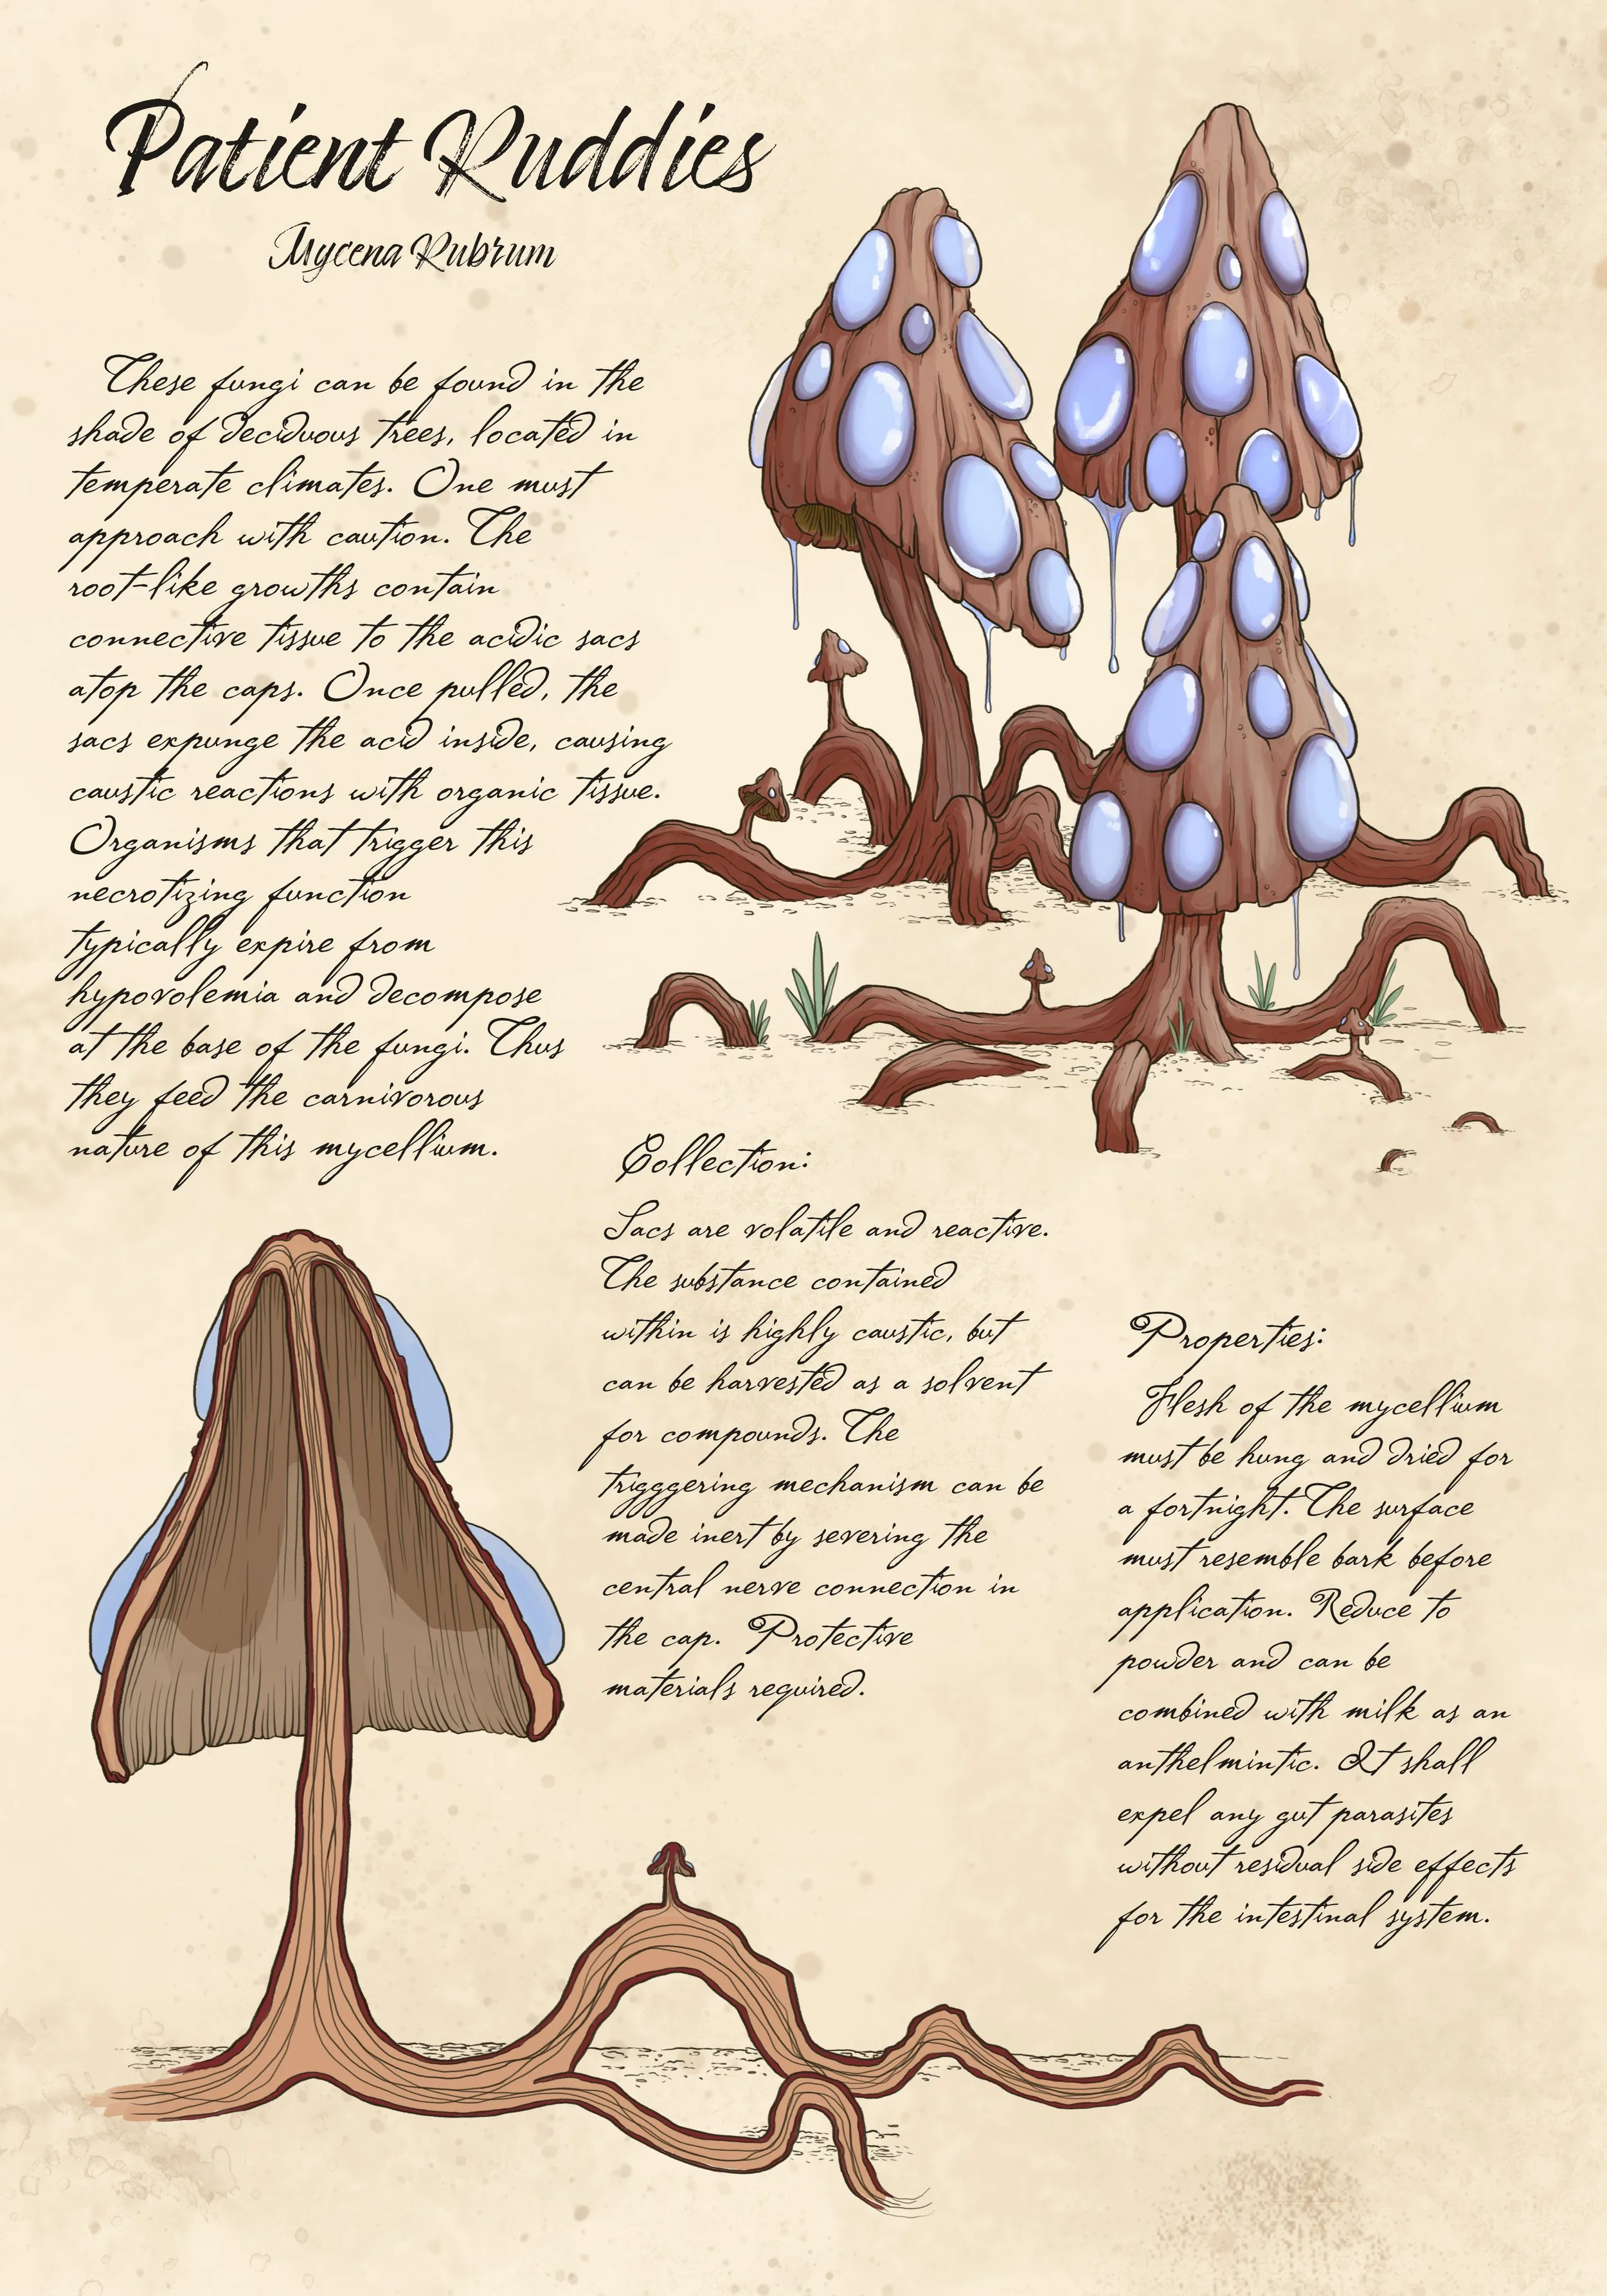 Patient Ruddies
Mycena Rubrum
These fungi can be found in the
shade of deciduous trees, located in
temperate climates. One must
approach with caution. The
root-like growths contain
connective tissue to the acidic sacs
atop the caps. Once pulled, the
sacs expunge the acid inside, causing
caustic reactions with organic tissue.
Organisms that trigger this
necrotizing function
typically expire from
hypovolemia and decompose
at the base of the fungi. Thus
they feed the carnivorous
nature of this mycellium.
Collection:
Sacs are volatile and reactive.
The substance contained
within is highly caustic, but
can be harvested as a solvent
for compounds. The
trigggering mechanism can be
made inert by severing the
central nerve connection in
the cap. Protective
materials required.
Properties:
Flesh of the mycellium
must be hung and dried for
a fortnight. The surface
must resemble bark before
application. Reduce to
powder and can be
combined with milk as an
anthelmintic. It shall
expel any gut parasites
without residual side effects
for the intestinal system.